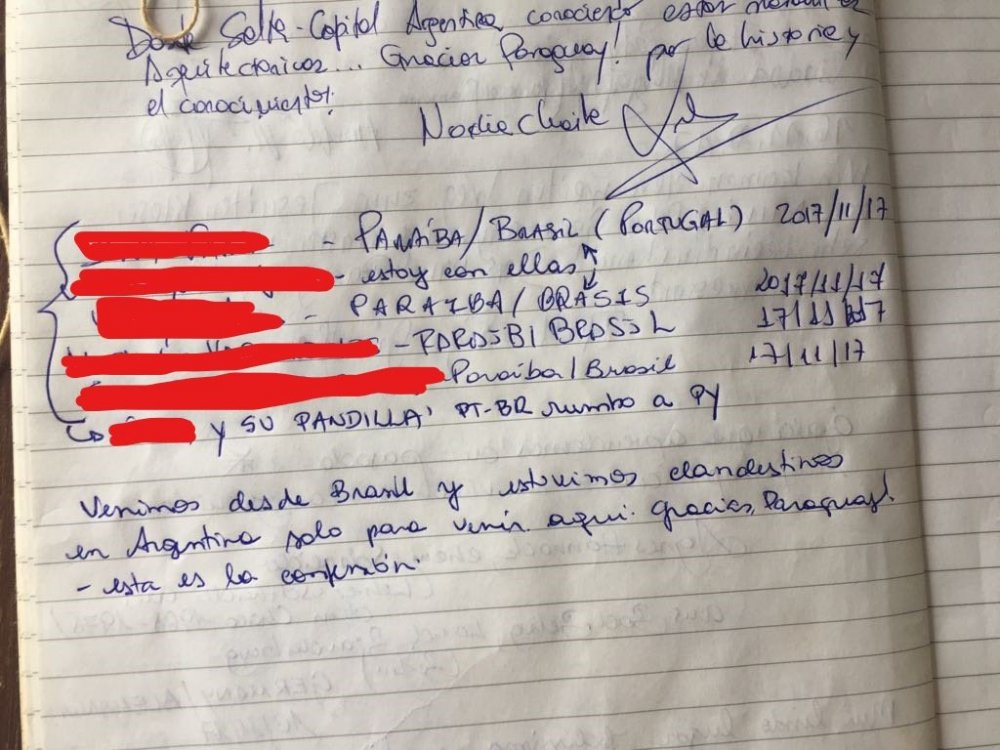 Desde Salta-Capital Argentina conociendo estos
Arquitectonicos... Gracias Paraguay! por la historia y
el conocimiento!
Nadia Chaile
- PARAÍBA/BRASIL (PORTUGAL) 2017/11/17
- estoy con ellas
- PARAIBA/BRASIS 2017/11/17
- BRASIL 17/11/17
Paraíba/Brasil 17/11/17
y SU PANDILLA PT-BR rumbo a PY
Venimos desde Brasil y estuvimos clandestinos
en Argentina solo para venir aqui. Gracias, Paraguay!
- esta es la confesión.